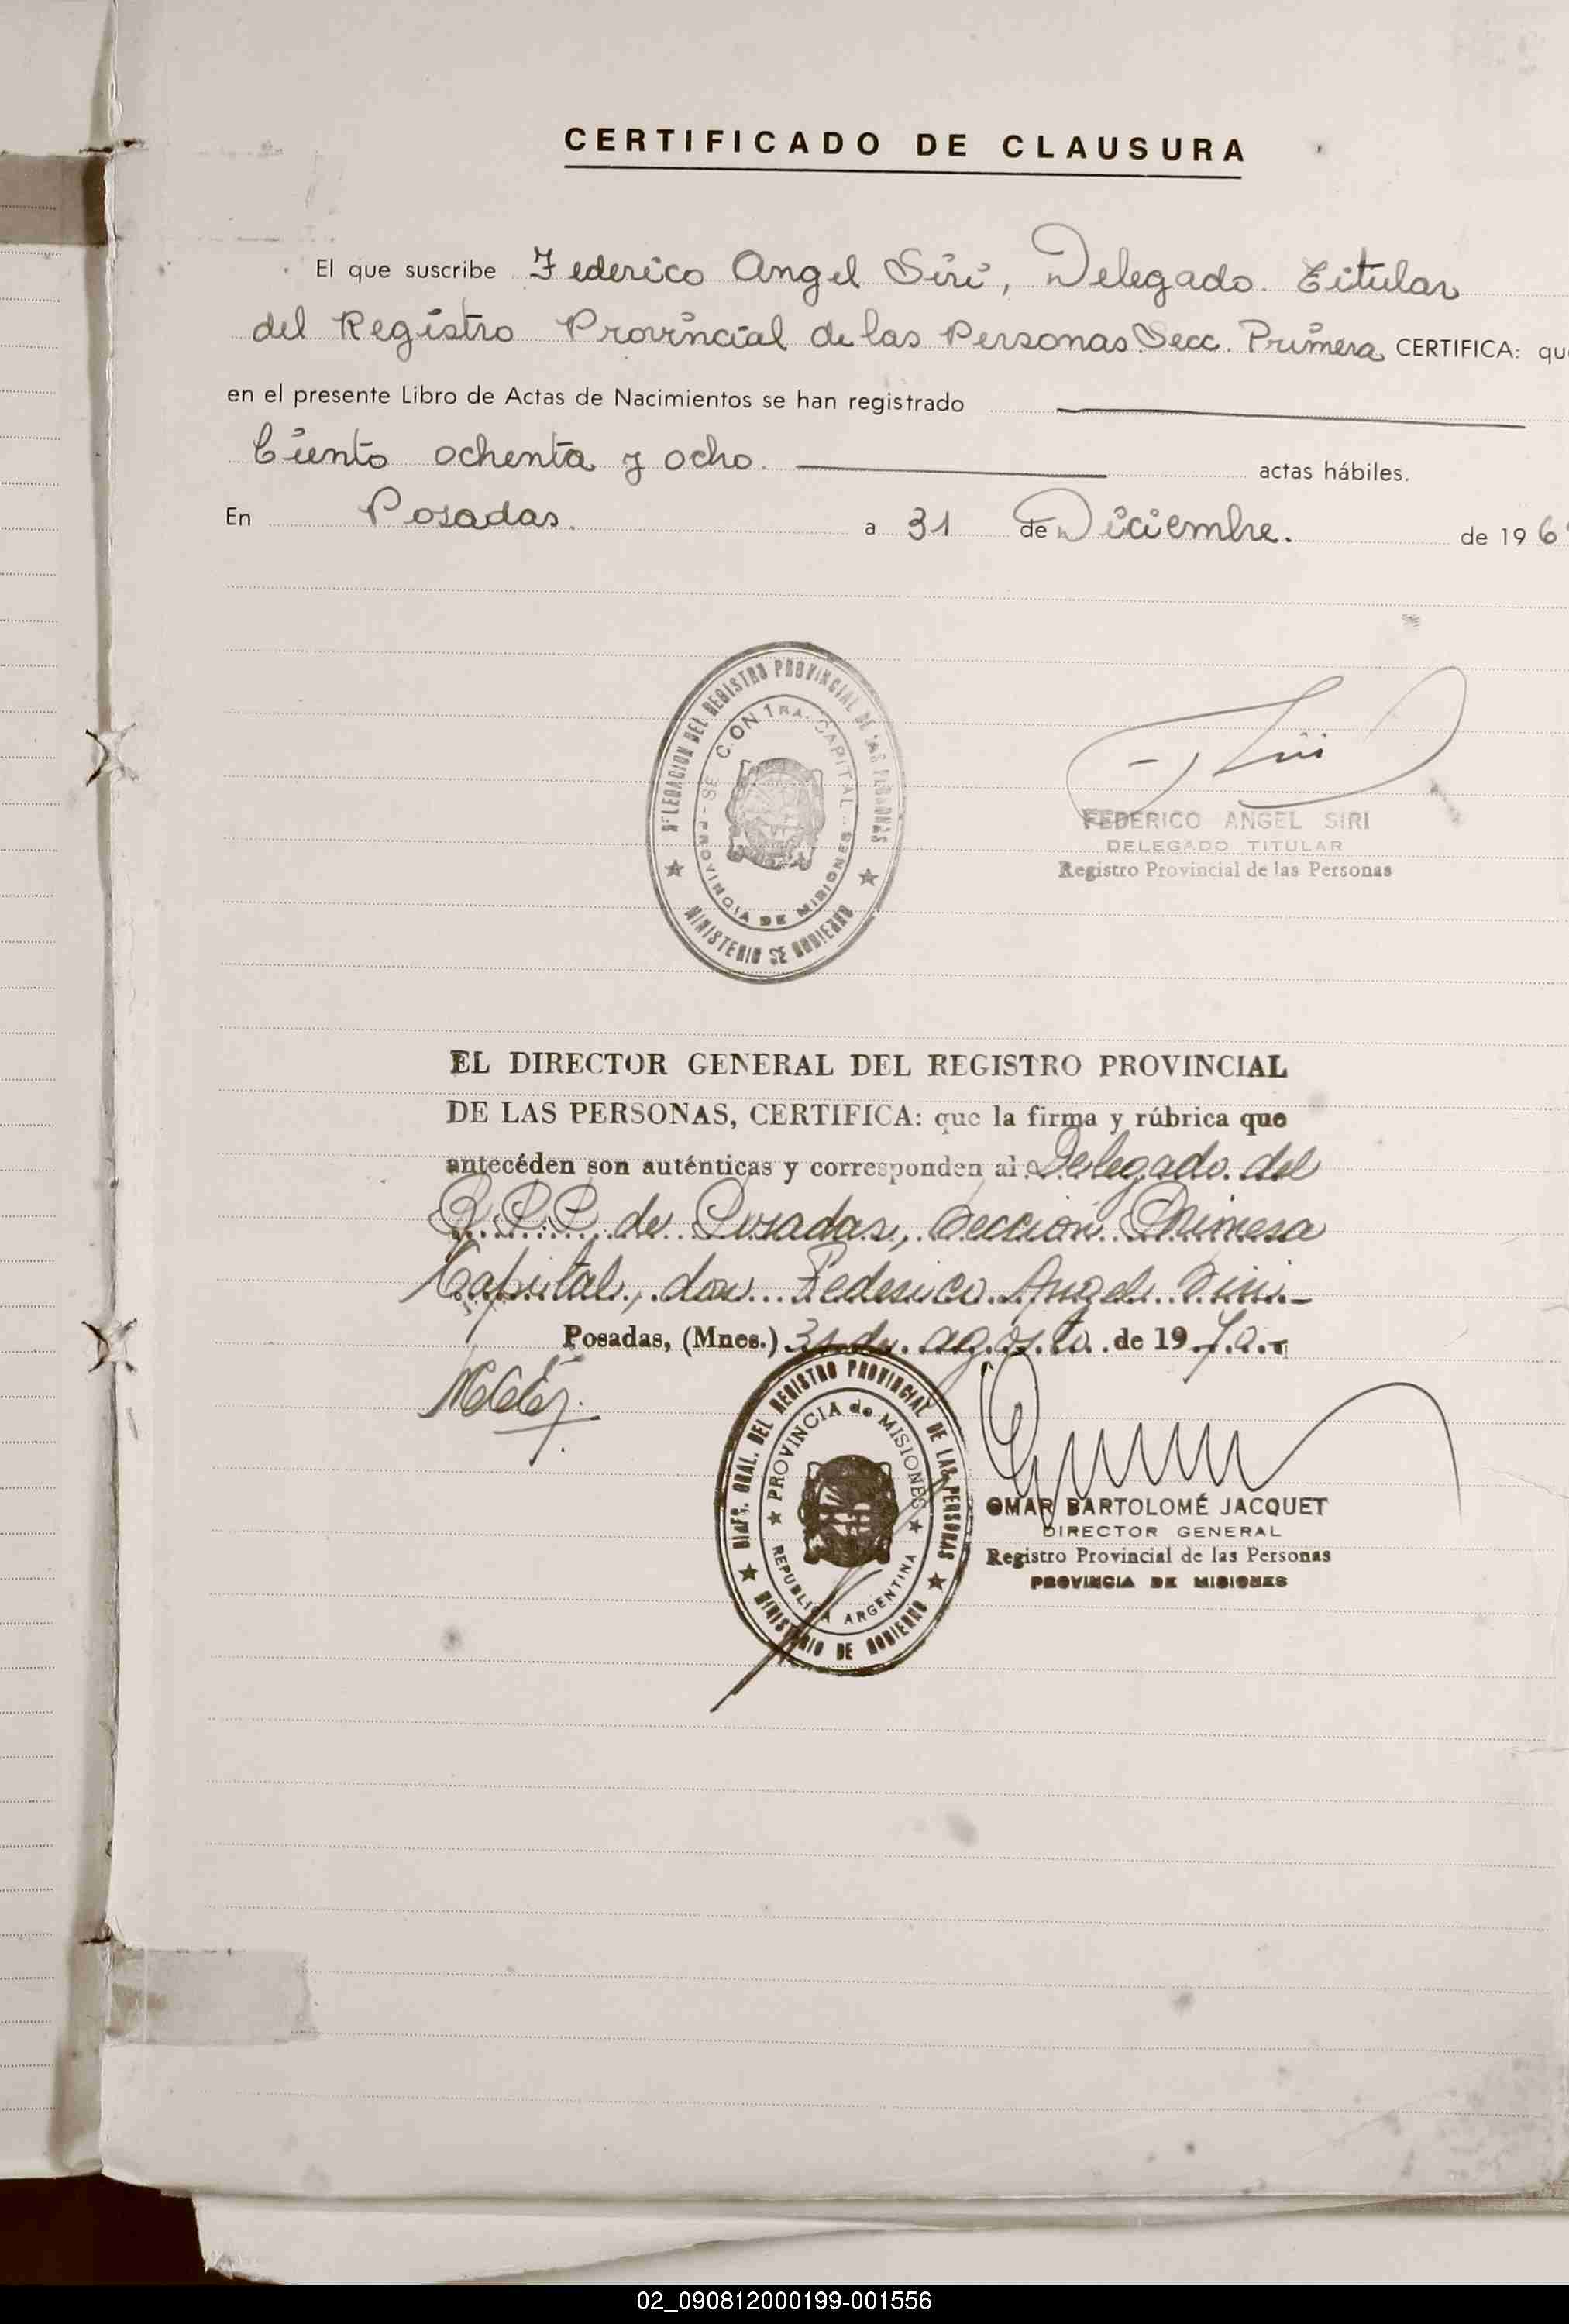 CERTIFICADO DE CLAUSURA
El que suscribe Federico Angel Siri, Delegado. Titular
del Registro Provincial de las Personas Secc. Primera CERTIFICA: qu
en el presente Libro de Actas de Nacimientos se han registrado
Ciento ochenta y ocho. actas hábiles.
En Posadas. a 31 de Diciembre. de 196
DELEGACION DEL REGISTRO PROVINCIAL DE LAS PERSONAS
SECCION 1RA. CAPITAL
PROVINCIA DE MISIONES
MINISTERIO DE GOBIERNO
FEDERICO ANGEL SIRI
DELEGADO TITULAR
Registro Provincial de las Personas
EL DIRECTOR GENERAL DEL REGISTRO PROVINCIAL
DE LAS PERSONAS, CERTIFICA: que la firma y rúbrica que
antecéden son auténticas y corresponden al Delegado del
R.P.P. de Posadas, Sección Primera
Capital, don Federico Angel Siri.-
Posadas, (Mnes.) 31 de agosto de 1970.-
DIREC. GRAL. DEL REGISTRO PROVINCIAL DE LAS PERSONAS
PROVINCIA de MISIONES
REPUBLICA ARGENTINA
MINISTERIO DE GOBIERNO
OMAR BARTOLOMÉ JACQUET
DIRECTOR GENERAL
Registro Provincial de las Personas
PROVINCIA DE MISIONES
02_090812000199-001556